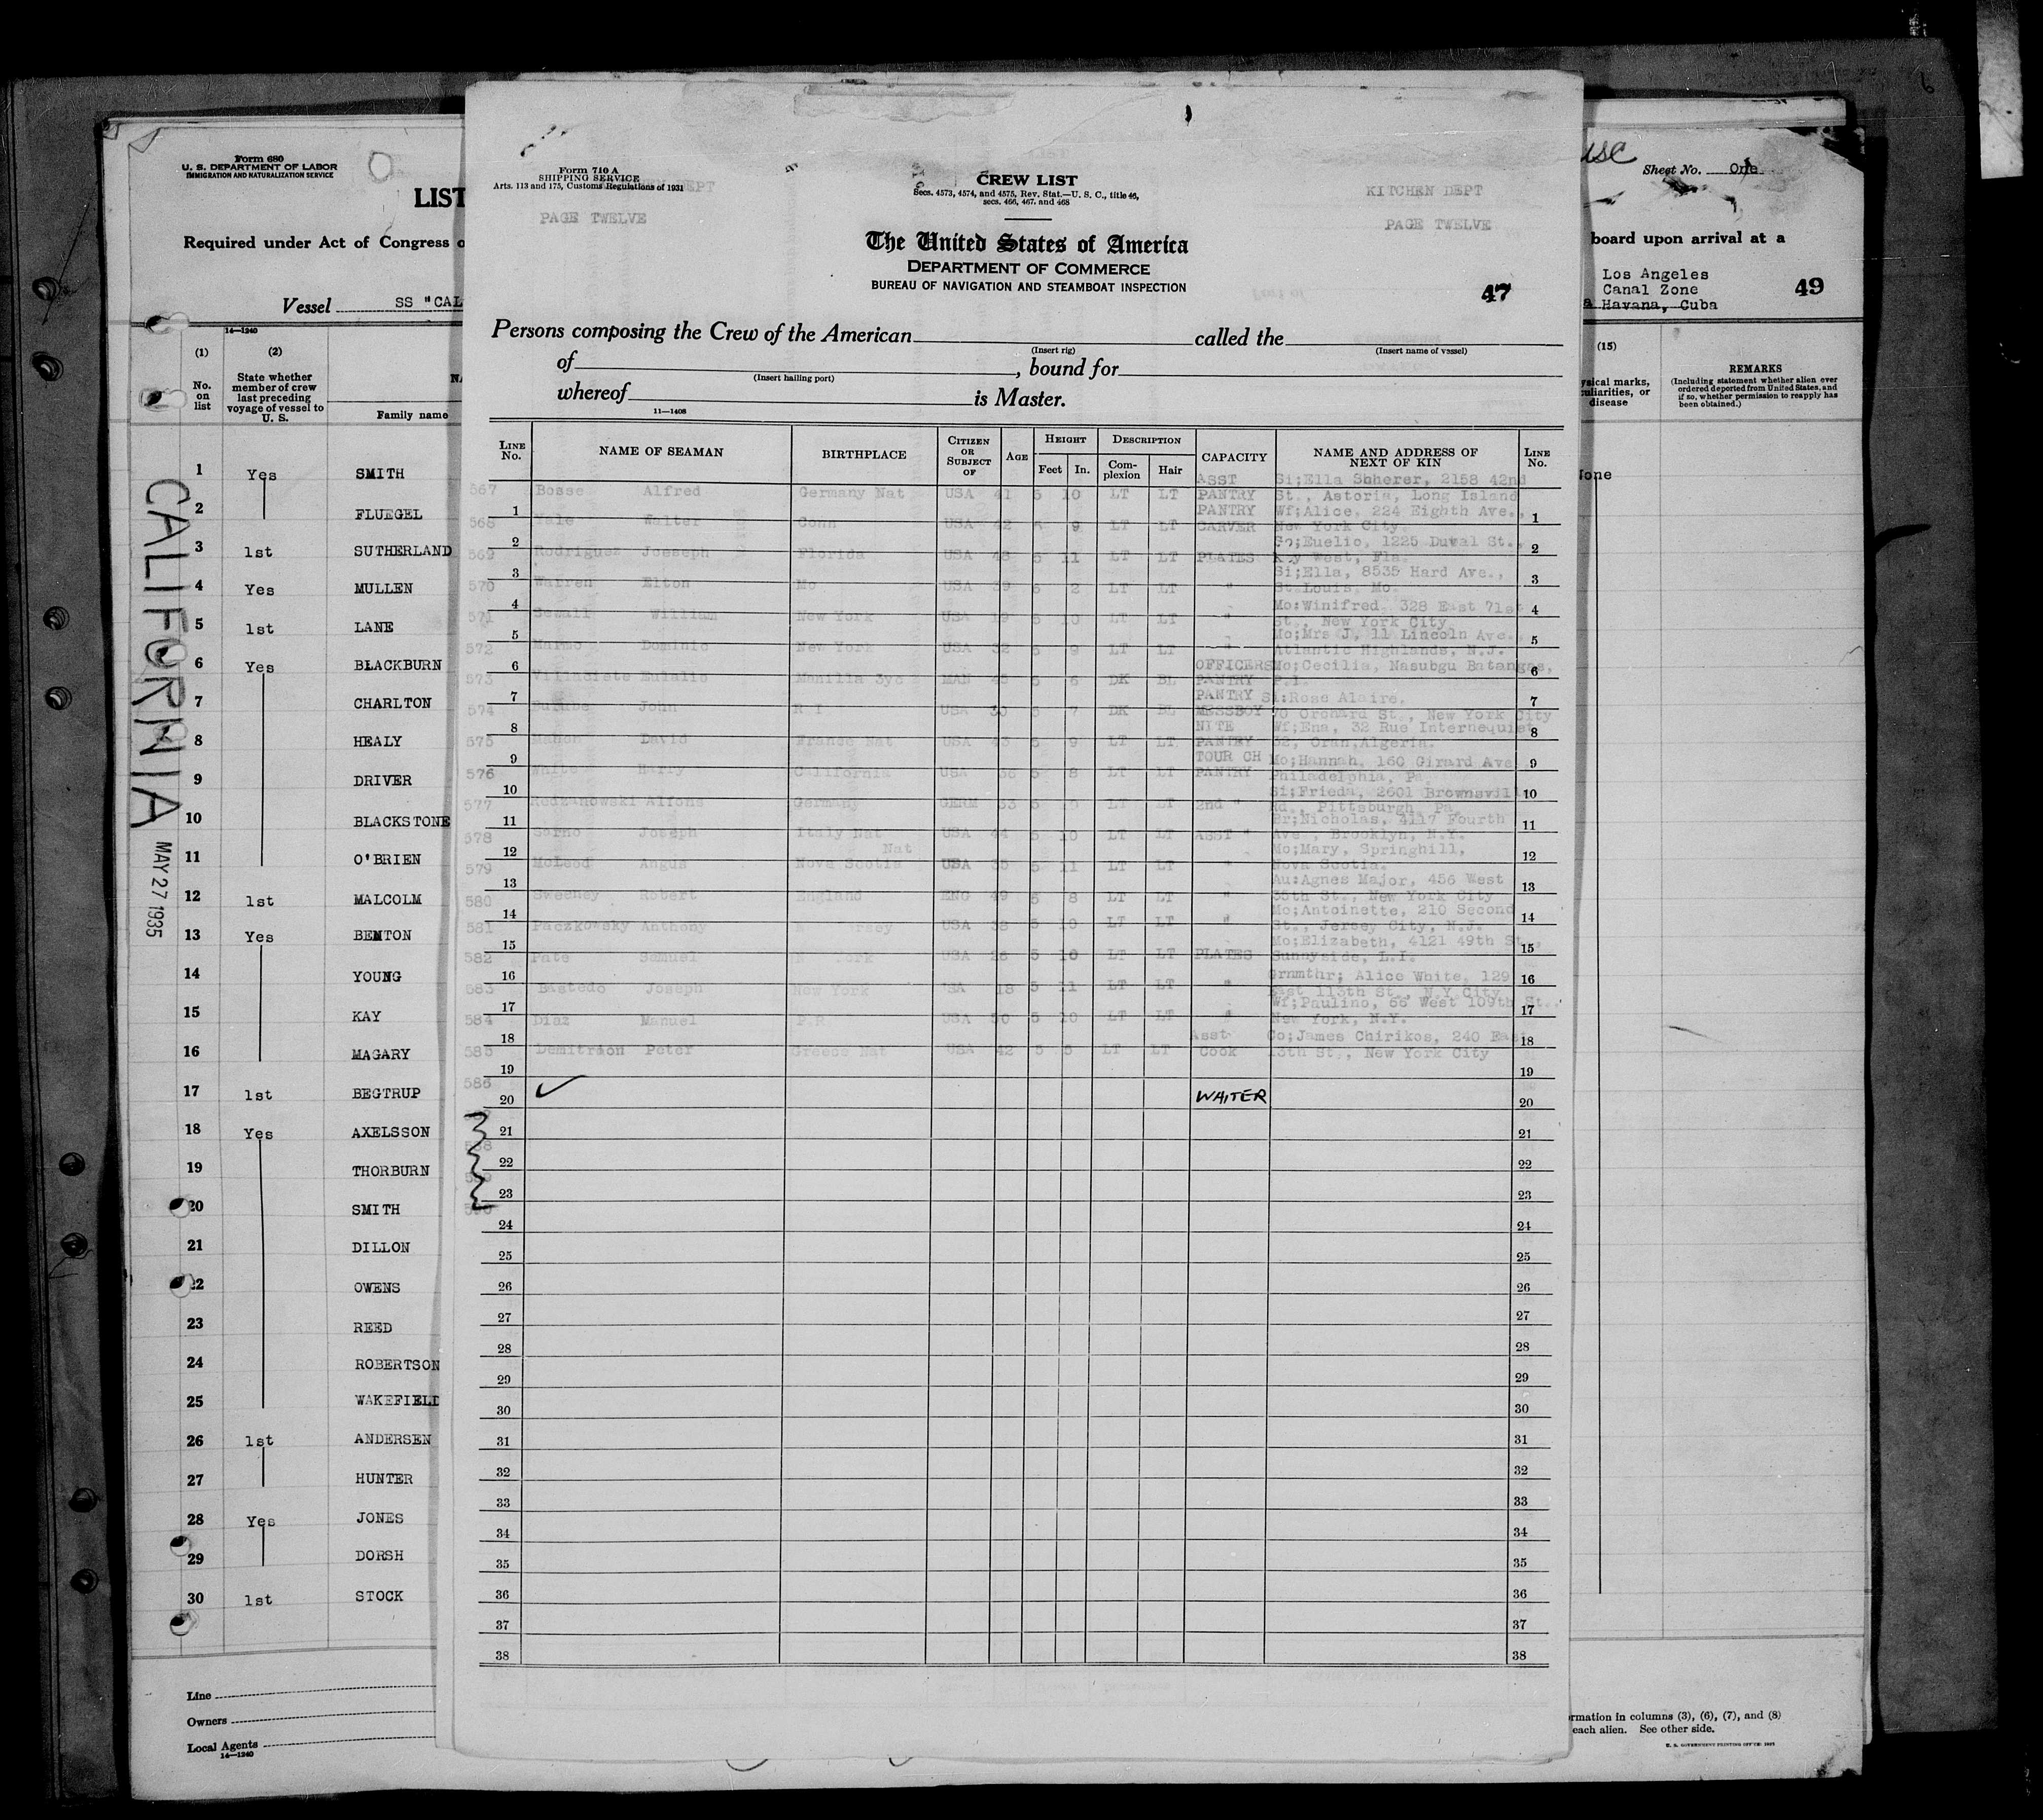 Form 680
U. S. DEPARTMENT OF LABOR
IMMIGRATION AND NATURALIZATION SERVICE
LIST
Required under Act of Congress o
Vessel SS "CAL
14—1240
(1) (2)
No. on list
State whether member of crew last preceding voyage of vessel to U. S.
NA
Family name
1 Yes SMITH
2 FLUEGEL
3 1st SUTHERLAND
4 Yes MULLEN
5 1st LANE
6 Yes BLACKBURN
7 CHARLTON
8 HEALY
9 DRIVER
10 BLACKSTONE
11 O'BRIEN
12 1st MALCOLM
13 Yes BENTON
14 YOUNG
15 KAY
16 MAGARY
17 1st BEGTRUP
18 Yes AXELSSON
19 THORBURN
20 SMITH
21 DILLON
22 OWENS
23 REED
24 ROBERTSON
25 WAKEFIELD
26 1st ANDERSEN
27 HUNTER
28 Yes JONES
29 DORSH
30 1st STOCK
Line
Owners
Local Agents
14—1240
CALIFORNIA MAY 27 1935
Form 710 A
SHIPPING SERVICE
Arts. 113 and 175, Customs Regulations of 1931
PAGE TWELVE
CREW LIST
Secs. 4573, 4574, and 4575, Rev. Stat.—U. S. C., title 46,
secs. 466, 467, and 468
KITCHEN DEPT
PAGE TWELVE
The United States of America
DEPARTMENT OF COMMERCE
BUREAU OF NAVIGATION AND STEAMBOAT INSPECTION
47
Persons composing the Crew of the American called the
(Insert rig) (Insert name of vessel)
of , bound for
(Insert hailing port)
whereof is Master.
11—1408
LINE No. NAME OF SEAMAN BIRTHPLACE CITIZEN OR SUBJECT OF AGE HEIGHT Feet In. DESCRIPTION Complexion Hair CAPACITY NAME AND ADDRESS OF NEXT OF KIN LINE No.
567 Bosse Alfred Germany Nat USA 41 5 10 LT LT ASST PANTRY Si;Ella Shherer, 2158 42nd St., Astoria, Long Island
1 568 Yale Walter Conn USA 42 5 9 LT LT PANTRY CARVER Wf;Alice, 224 Eighth Ave., New York City 1
2 569 Rodriguez Joeseph Florida USA 48 5 11 LT LT PLATES Co;Euelio, 1225 Duval St., Key West, Fla. 2
3 570 Warren Elton Mo USA 39 5 2 LT LT " Si;Ella, 8535 Hard Ave., St Louis, Mo. 3
4 571 Sewall William New York USA 19 5 10 LT LT " Mo:Winifred, 328 East 71st St., New York City 4
5 572 Marmo Dominic New York USA 32 5 9 LT LT " Mo;Mrs J, 11 Lincoln Ave., Atlantic Highlands, N.J. 5
6 573 Villaciste Eulalio Manilla 3yc MAN 5 6 DK BL OFFICERS PANTRY Mo;Cecilia, Nasubgu Batangas, P.I. 6
7 574 John R I USA 30 5 7 DK BL PANTRY MESSBOY Si:Rose Alaire, 70 Orchard St., New York City 7
8 575 Mahon David France Nat USA 43 5 9 LT LT NITE PANTRY Wf;Ena, 32 Rue Internequist 32, Oran,Algeria. 8
9 576 White Harry California USA 36 5 8 LT LT TOUR CH PANTRY Mo;Hannah, 160 Girard Ave Philadelphia, Pa. 9
10 577 Redzanowski Alfons Germany GERM 33 5 10 LT LT 2nd " Si;Frieda, 2601 Brownsvil Rd., Pittsburgh, Pa. 10
11 578 Sarno Joseph Italy Nat USA 44 5 10 LT LT ASST " Br;Nicholas, 4117 Fourth Ave., Brooklyn, N.Y. 11
12 579 McLeod Angus Nova Scotia Nat USA 35 5 11 LT LT " Mo;Mary, Springhill, Nova Scotia. 12
13 580 Sweeney Robert England ENG 49 5 8 LT LT " Au:Agnes Major, 456 West 35th St., New York City 13
14 581 Paczkowsky Anthony USA 38 5 10 LT LT " Mo;Antoinette, 210 Second St., Jersey City, N.J. 14
15 582 Pate Samuel USA 26 5 10 LT LT PLATES Mo;Elizabeth, 4121 49th St., Sunnyside, L.I. 15
16 583 Bastedo Joseph New York USA 18 5 11 LT LT " Grnmthr; Alice White, 129 East 115th St., N.Y.City 16
17 584 Diaz Manuel P.R USA 30 5 10 LT LT " Wf;Paulino, 66 West 109th St., New York, N.Y. 17
18 585 Demitrion Peter Greece Nat USA 42 5 5 LT LT Asst Cook Co;James Chirikos, 240 East 13th St., New York City 18
19 586 19
20 ✓ WAITER 20
21 21
22 22
23 23
24 24
25 25
26 26
27 27
28 28
29 29
30 30
31 31
32 32
33 33
34 34
35 35
36 36
37 37
38 38
USC
Sheet No. One
board upon arrival at a
Los Angeles
Canal Zone
Havana, Cuba
49
(15)
ysical marks, culiarities, or disease
REMARKS
(Including statement whether alien ever ordered deported from United States, and if so, whether permission to reapply has been obtained.)
None
rmation in columns (3), (6), (7), and (8)
each alien. See other side.
U. S. GOVERNMENT PRINTING OFFICE